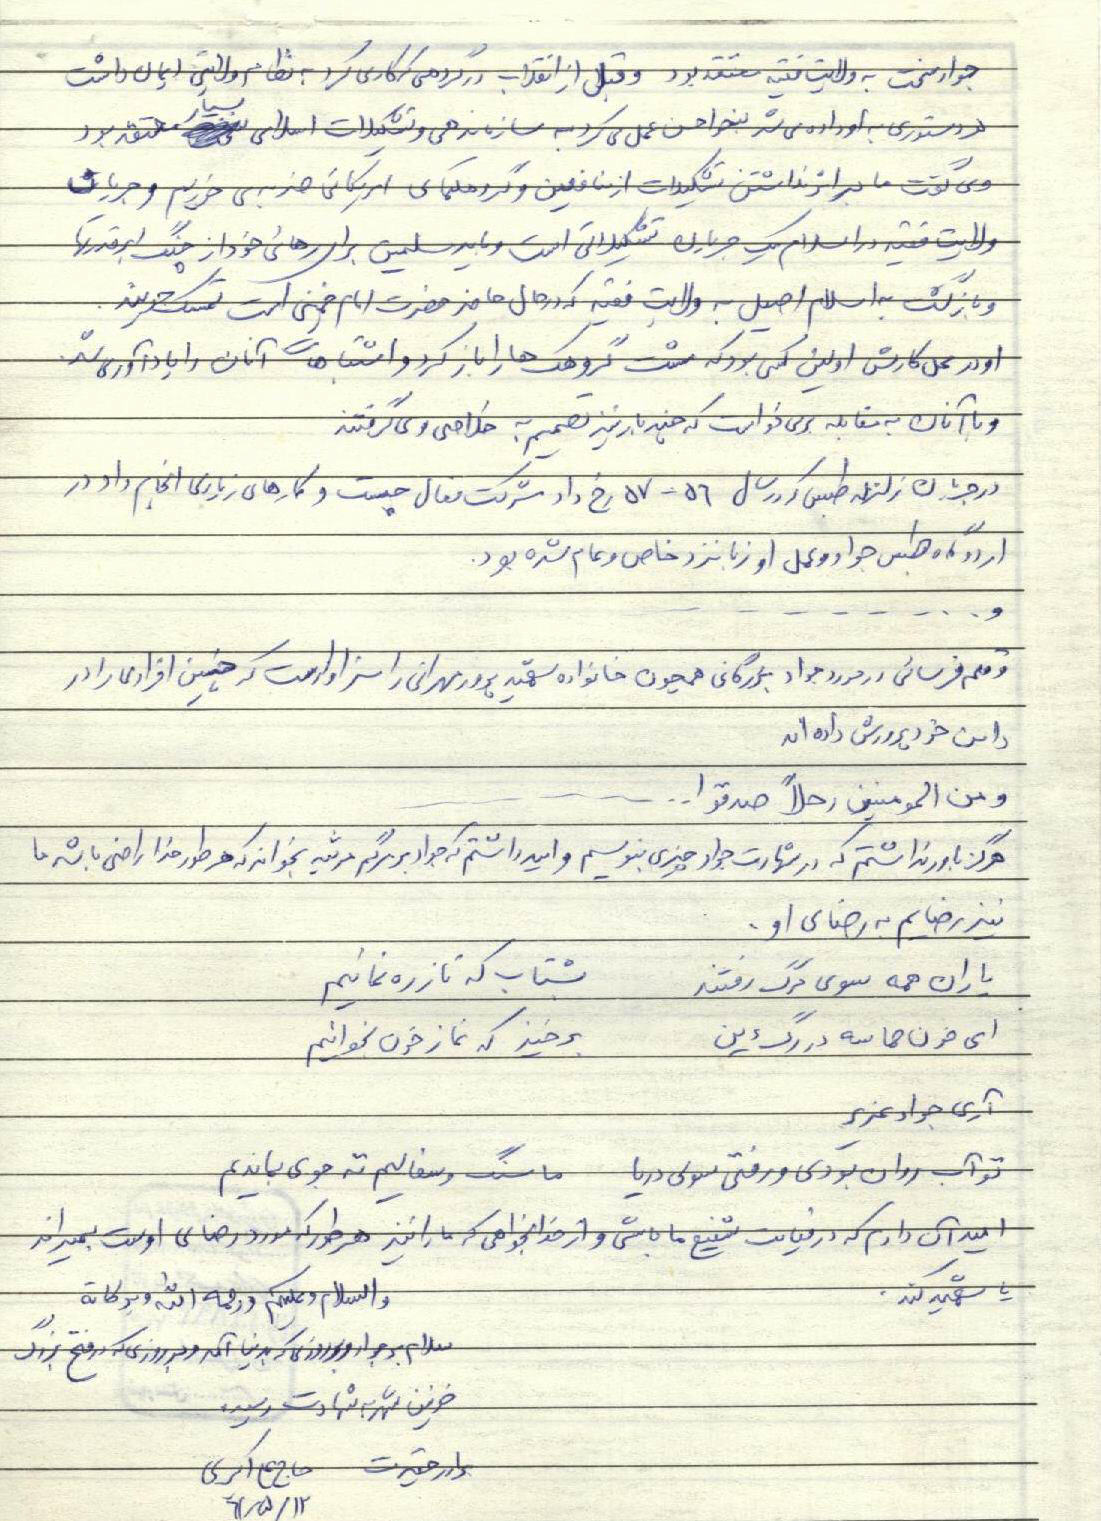 جواد سخت به ولایت فقیه معتقد بود و قبل از انقلاب در گروهی که کار می کرد به نظام ولایتی ایمان داشت
هر دستوری به او داده می شد بنحو احسن عمل می کرد به سازماندهی و تشکیلات اسلامی بسیار معتقد بود
و می گفت ما بر اثر نداشتن تشکیلات از منافقین و گروهکهای امریکائی ضربه می خوریم و جریان
ولایت فقیه در اسلام یک جریان تشکیلاتی است و باید مسلمین برای رهائی خود از چنگ ابرقدرتها
و بازگشت به اسلام اصیل به ولایت فقیه که در حال حاضر حضرت امام خمینی است تمسک جویند.
او در محل کارش اولین کسی بود که مشت گروهک ها را باز کرد و اشتباهات آنان را یادآوری می شد.
و با آنان به مقابله برمی خواست که چند بار نیز تصمیم به
در جریان زلزله طبس که در سال ۵۶ - ۵۷ رخ داد شرکت فعال جست و کارهای زیادی انجام داد در
اردوگاه طبس جواد و عمل او زبانزد خاص و عام شده بود.
و . . - - - - - -
و قلم فرسائی در مورد جواد بزرگانی همچون خانواده شهید پرور مهرانی را سزاوار است که چنین افرادی را در
دامن خود پرورش داده اند
و من المومنین رجالاً صدقوا ..
هرگز باور نداشتم که در شهادت جواد چیزی بنویسم و امید داشتم که جواد بر مرگم مرثیه بخواند که هر طور خدا راضی باشد ما
نیز رضایم به رضای او .
یاران همه سوی مرگ رفتند بشتاب که تا ز ره نمانیم
ای خون حماسه در رگ دین برخیز که نماز خون بخوانیم
آری جواد عزیز
تو آب روان بودی و رفتی سوی دریا ما سنگ و سفالیم ته جوی بماندیم
امید آن دارم که در قیامت شفیع ما باشی و از خدا بخواهی که ما را نیز هر طور که مورد رضای اوست بمیراند
یا شهید کند .
والسلام و علیکم و رحمه الله و برکاته
سلام بر جواد و بر روزی که بدنیا آمد و بر روزی که در فتح بزرگ
خونین شهر به شهادت رسید.
برادر حقیرت حاج علی اکبری
۶۱/۵/۱۲